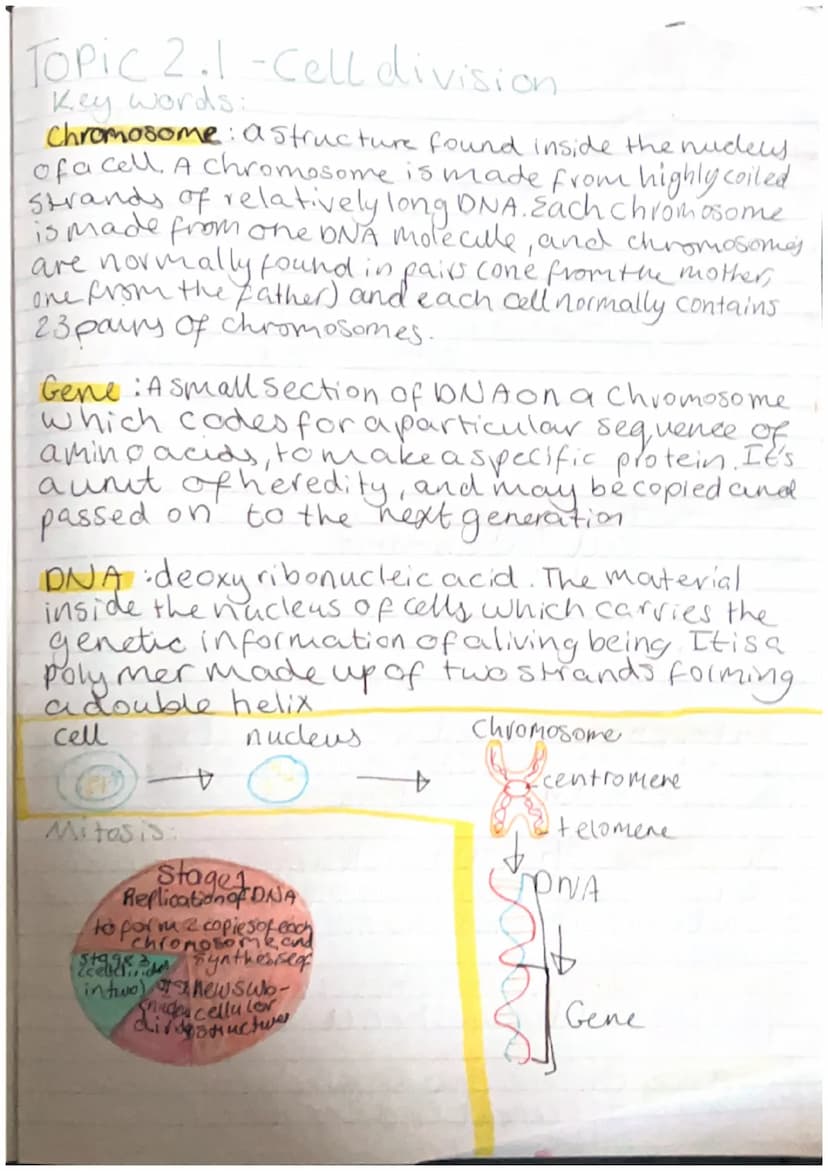 Topic 2.1 - Cell division
Key words:
Chromosome: a structure found inside the nucleus
of a cell. A chromosome is made from highly coiled
strands of relatively long DNA. Each chromosome
is made from one DNA molecule, and chromosomes
are normally found in pairs (one from the mother,
one from the father) and each cell normally contains
23 pairs of chromosomes.
Gene: A small section of DNA on a chromosome
which codes for a particular sequence of
amino acids, to make a specific protein. It's
a unit of heredity, and may be copied and
passed on to the next generation
DNA: deoxyribonucleic acid. The material
inside the nucleus of cells, which carries the
genetic information of a living being. It is a
polymer made up of two strands forming
a double helix
cell
nucleus
Chromosome
centromere
telomere
DNA
Gene
Mitosis:
Stage 1
Replication of DNA
to form 2 copies of each
chromosome and
synthesis of
new sub-
cellular
structures
Stage 3
(cell divides
in two)